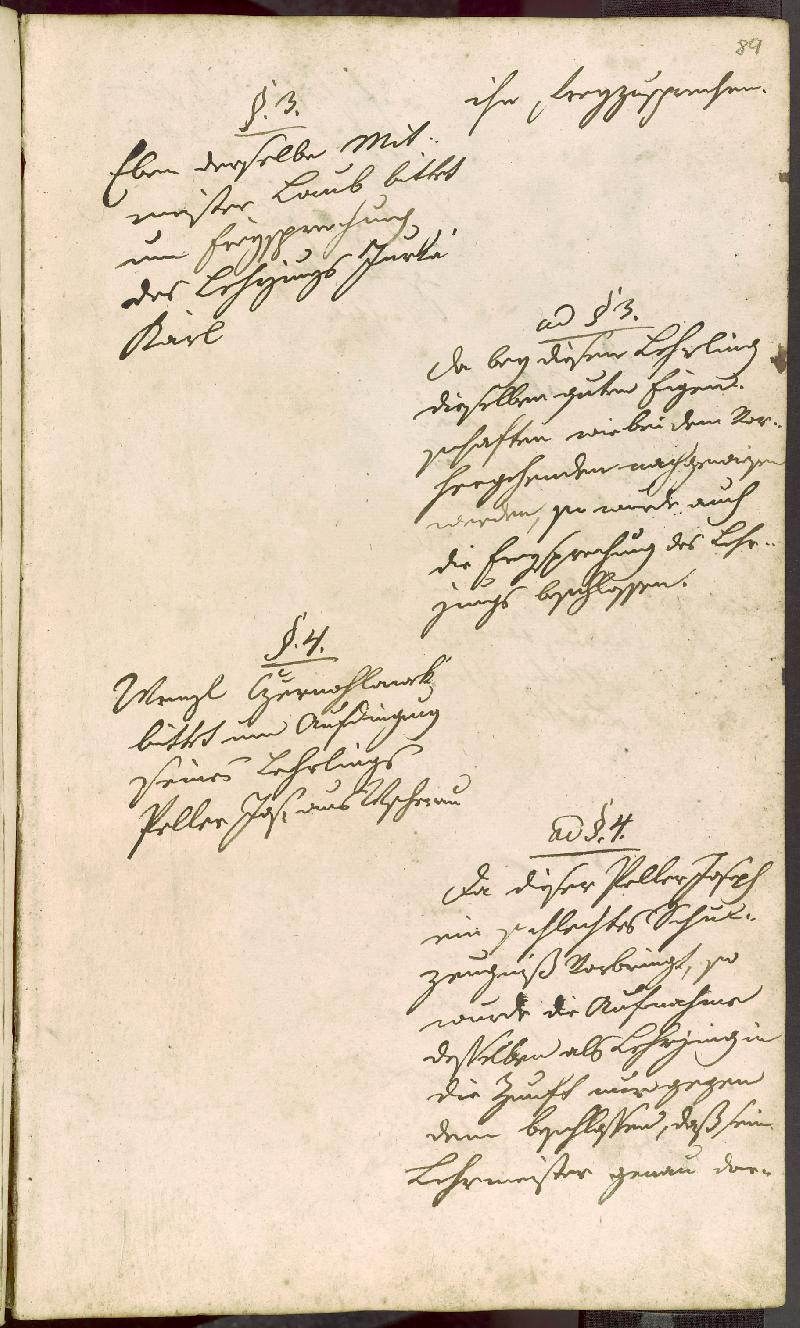 89
ihn freyzusprechen.
§. 3.
Eben derselbe Mit-
meister Laub bittet
um Freysprechung
des Lehrjungs Jurka
Karl
ad § 3.
Da bey diesem Lehrling
dieselben guten Eigen-
schaften wie bei dem Vor-
hergehenden nachgewiesen
werden, so wurde auch
die Freysprechung des Lehr-
jungs beschlossen.
§. 4.
Wenzl Czernohlawek
bittet um Aufdingung
seines Lehrlings
Peller Jos. aus Wscherau
ad §. 4.
Da dieser Peller Joseph
ein schlechtes Schul-
zeugniß Vorbringt, so
wurde die Aufnahme
desselben als Lehrjung in
die Zunft nur gegen
dem beschlossen, daß sein
Lehrmeister genau dar-